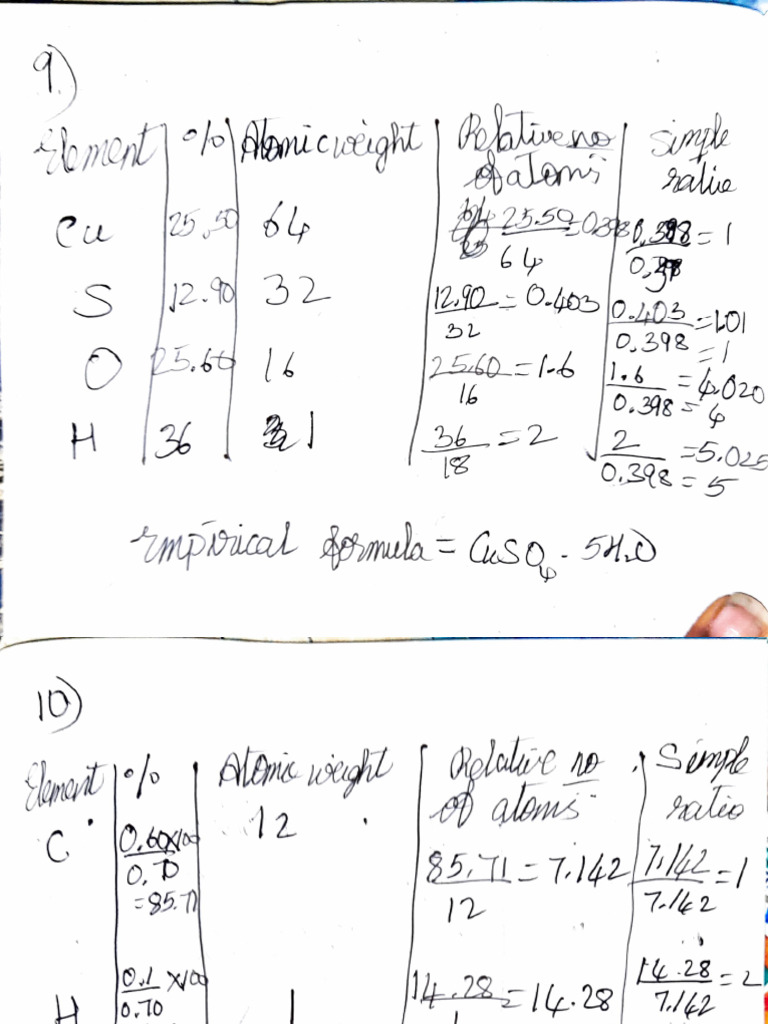 9.)
Element % Atomic weight Relative no of atoms simple ratio
Cu 25.50 64 25.50/64 = 0.398 0.398/0.398 = 1
S 12.90 32 12.90/32 = 0.403 0.403/0.398 = 1.01 = 1
O 25.60 16 25.60/16 = 1.6 1.6/0.398 = 4.020 = 4
H 36 1 36/18 = 2 2/0.398 = 5.025 = 5
Empirical formula = CuSO4 . 5H2O
10)
Element % Atomic weight Relative no of atoms Simple ratio
C 0.60/0.70 x100 = 85.71 12 85.71/12 = 7.142 7.142/7.142 = 1
H 0.1/0.70 x100 1 14.28/1 = 14.28 14.28/7.142 = 2